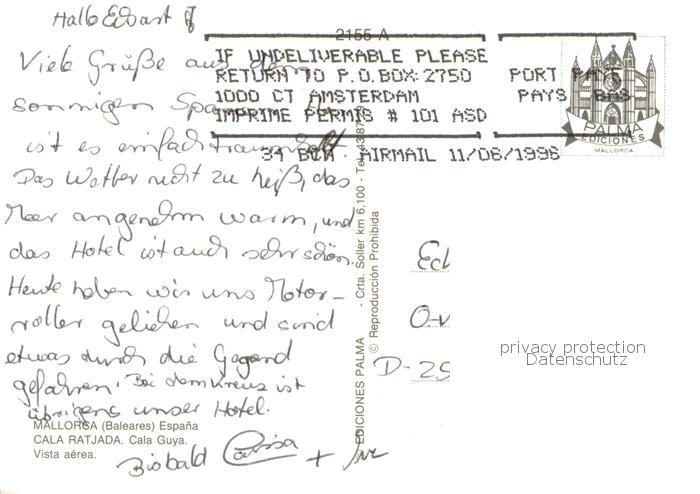 Hallo Eckart
2155-A
Viele Grüße aus dem
sonnigen Spanien. Es
ist es einfach traumhaft.
Das Wetter nicht zu heiß, das
Meer angenehm warm, und
das Hotel ist auch sehr schön.
Heute haben wir uns Motor-
roller geliehen und sind
etwas durch die Gegend
gefahren. Bei dem Kreuz ist
übrigens unser Hotel.
Bisbald Carisa +
MALLORCA (Baleares) España
CALA RATJADA. Cala Guya.
Vista aérea.
EDICIONES PALMA - Crta. Soller km 6,100 - Tel.
© Reproducción Prohibida
IF UNDELIVERABLE PLEASE
RETURN TO P.O.BOX:2750
1000 CT AMSTERDAM
IMPRIME PERMIS # 101 ASD
PORT PAYE
PAYS BAS
AIRMAIL 11/06/1996
PALMA
EDICIONES
MALLORCA
D-
privacy protection
Datenschutz